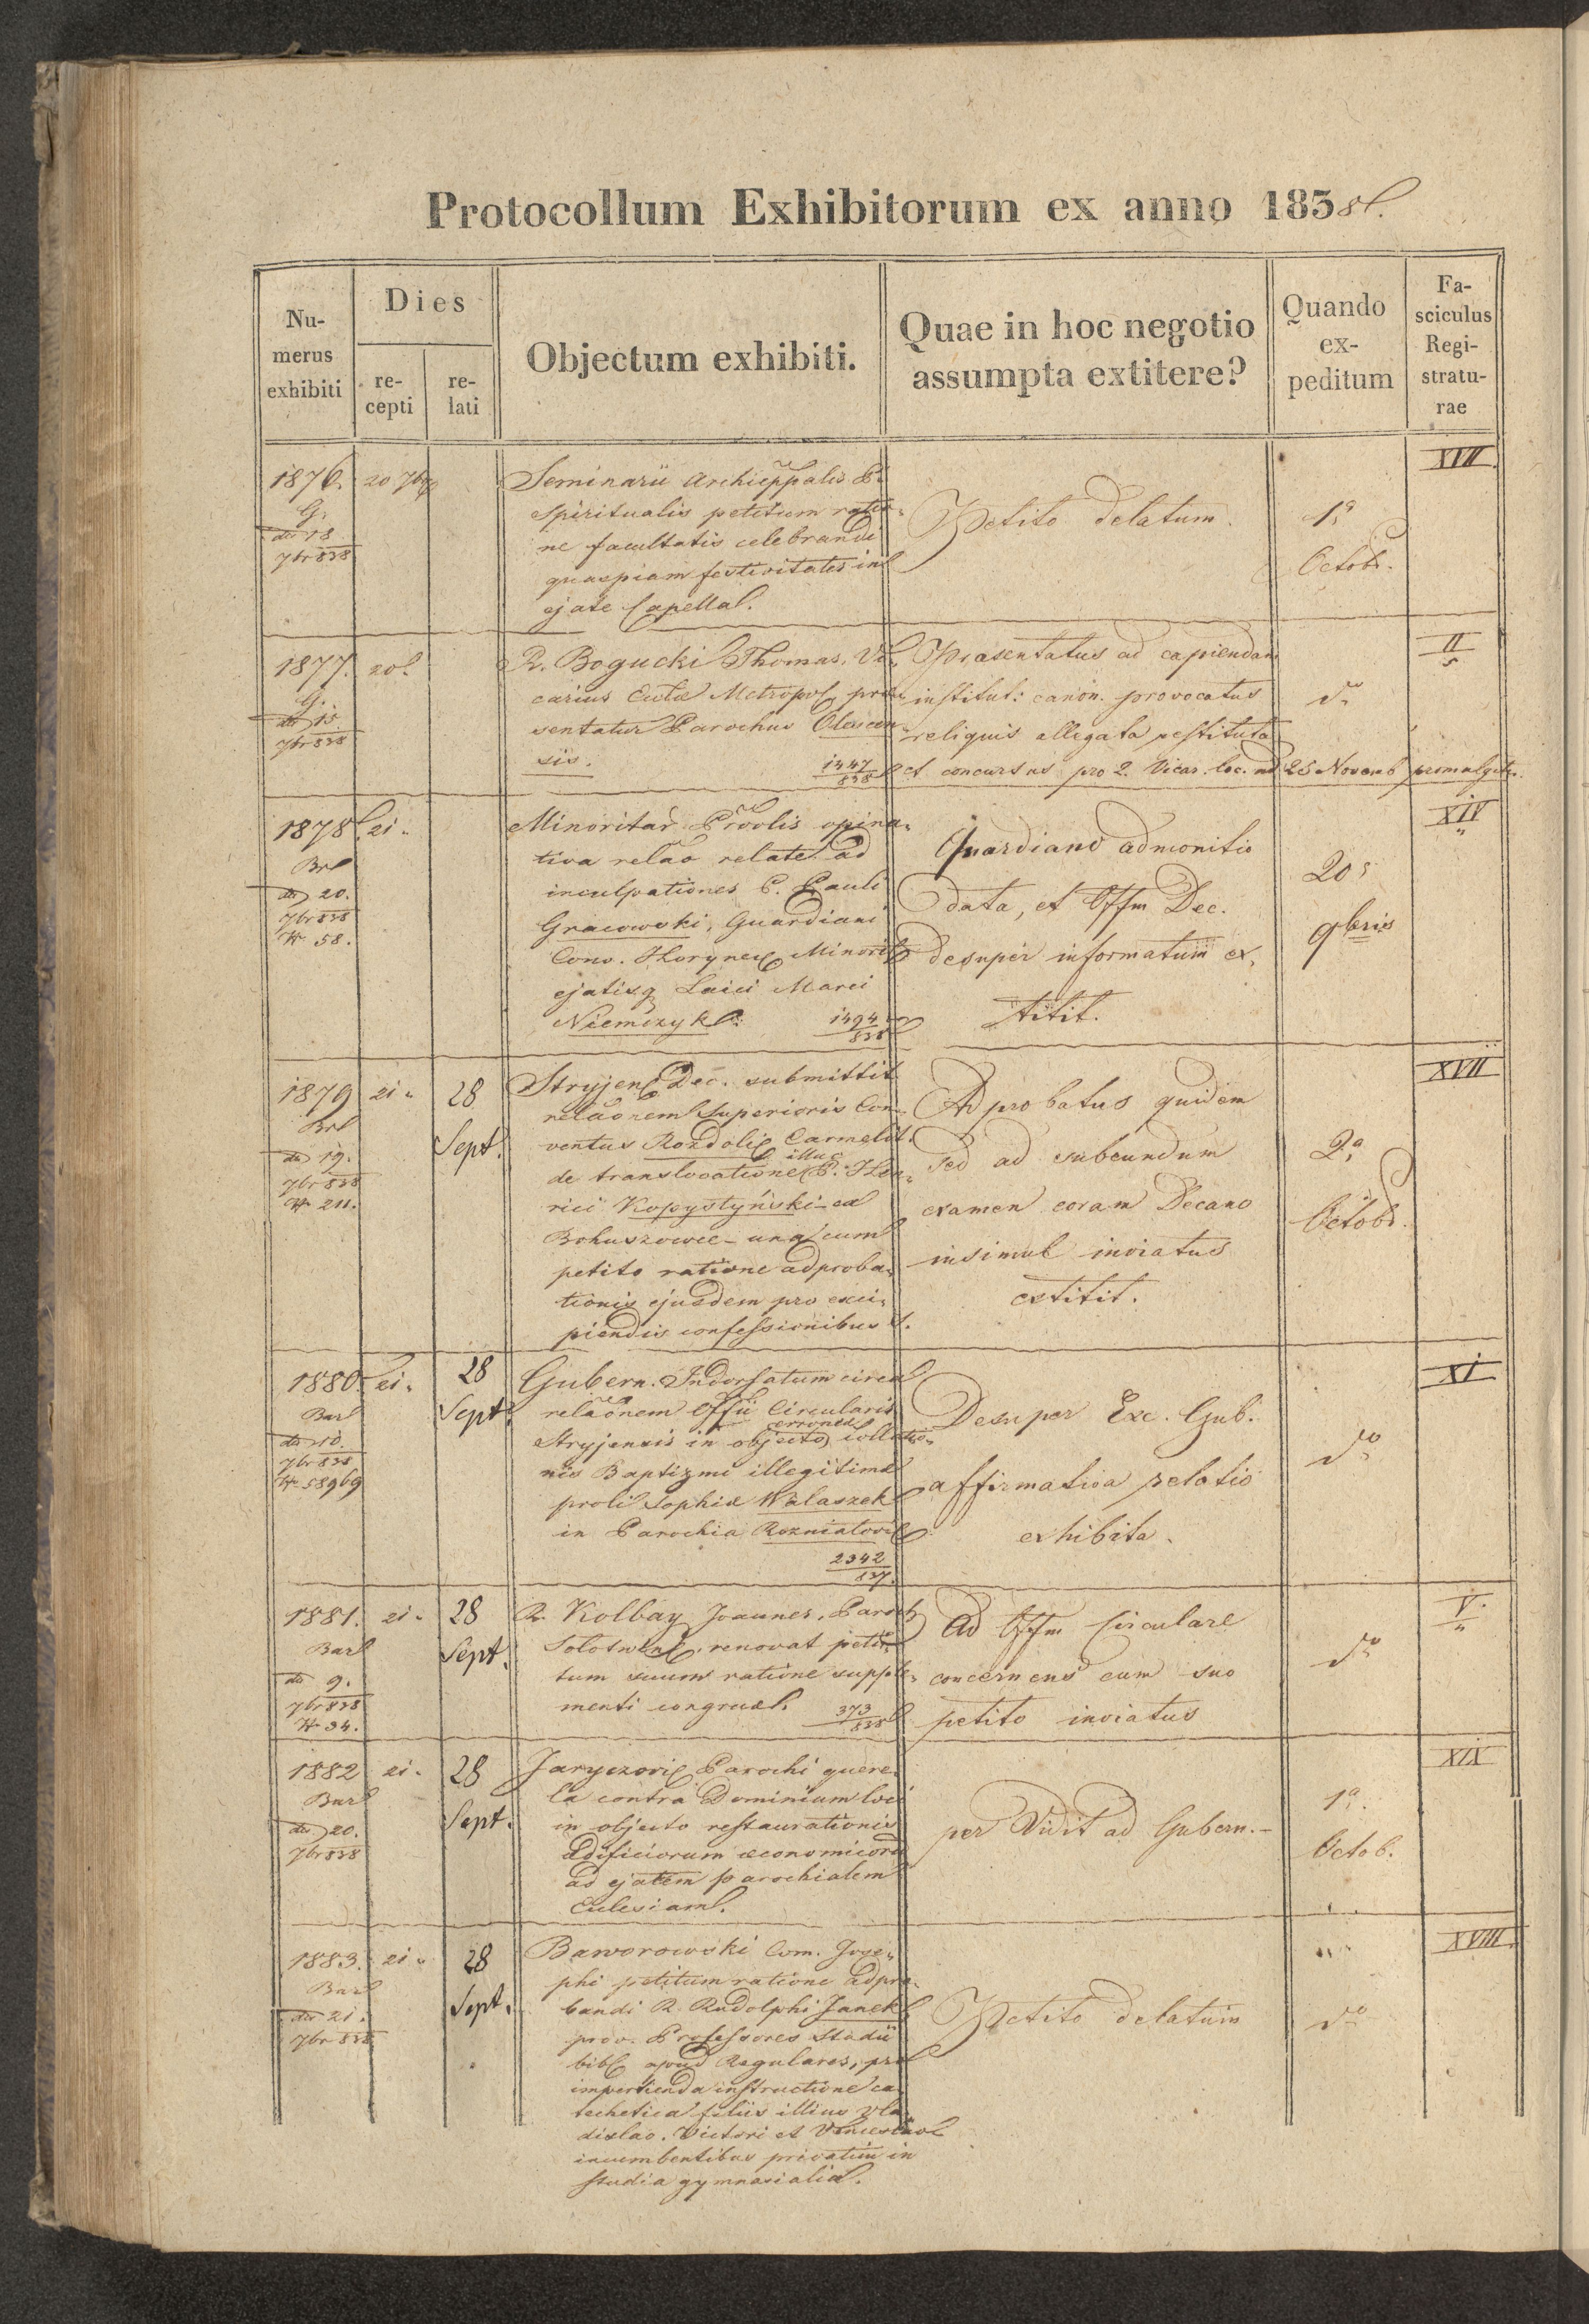 Protocollum Exhibitorum ex anno 1838.
Nu-
merus
exhibiti
Dies
re-
cepti
re-
lati
Objectum exhibiti.
Quae in hoc negotio
assumpta extitere?
Quando
ex-
peditum
Fa-
sciculus
Regi-
stratu-
rae
1876.
G.
dto 18
7br 838
20 7br
Seminarii Archieppalis
Spiritualis petitum ratio-
ne facultatis celebrandi
quaspiam festivitates in
ejate Capella.
Petito delatum.
1a
Octob.
XVII
1877.
G.
dto 15
7br 838
20
R. Bogucki Thomas, Vi-
carius Metropol. prae-
sentatur Parochus
sis.
1447
838
Praesentatus ad capiendam
institut: canon. provocatus
reliquis allegata restituta
et concursus pro 2. Vicar. loc. ad 25 Novemb promulgat.
do
II
1878
Brl
dto 20.
7br 838
N 58.
21
Minoritar Provlis opina-
tiva relao relate ad
inculpationes P. Pauli
Gracowski, Guardiani
Conv. Horynec Minorit
ejatisq Laici Marci
Niemczyk
1494
838
Guardiano admonitio
data, et Offm Dec.
desuper informatum ex-
titit.
20
9bris
XIV
1879
Brl
dto 19.
7br 838
N 211.
21
28
Sept.
Stryjen Dec. submittit
relaonem Superioris Con-
ventus Rozdol Carmelit.
de translocatione illuc P. Hen-
rici Kopystyński ex
Bohuszowce una cum
petito ratione adproba-
tionis ejusdem pro exci-
piendis confessionibus
Adprobatus quidem
sed ad subeundum
examen coram Decano
insimul inviatus
extitit.
2a
Octob.
XVII
1880
Barl
dto 10.
7br 838
N 58969
21
28
Sept.
Gubern. Indorsatum circa
relaonem Offii Circularis
Stryjensis in objecto erroneae collatio-
nis Baptizmi illegitimae
proli Sophiae Walaszek
in Parochia Rozniatov
2342
837.
Desuper Exc. Gub.
affirmativa relatio
exhibita.
do
XI
1881.
Barl
dto 9.
7br 838
N 34.
21
28
Sept.
R. Kolbay Joannes, Paroch
Solotwin, renovat peti-
tum suum ratione supple-
menti congruae.
373
838
Ad Offm Circulare
concernens cum suo
petito inviatus
do
V.
1882
Barl
dto 20.
7br 838
21
28
Sept.
Jaryczov Parochi quere-
la contra Dominium loci
in objecto restaurationis
aedificiorum oeconomicor
ad ejatem parochialem
Eclesiam.
per Vidit ad Gubern.-
1a
Octob.
XIX
1883.
Barl
dto 21.
7br 838
21
28
Sept.
Baworowski Com. Jose-
phi petitum ratione adpro-
bandi R. Rudolphi Janek
prov. Professores Studii
bibl apud Regulares, pro
impertienda instructione ca-
techetica filiis illius Vla-
dislao, Victori et Venceslao
incumbentibus privatim in
studia gymnasialia.
Petito delatum
do
XVIII.